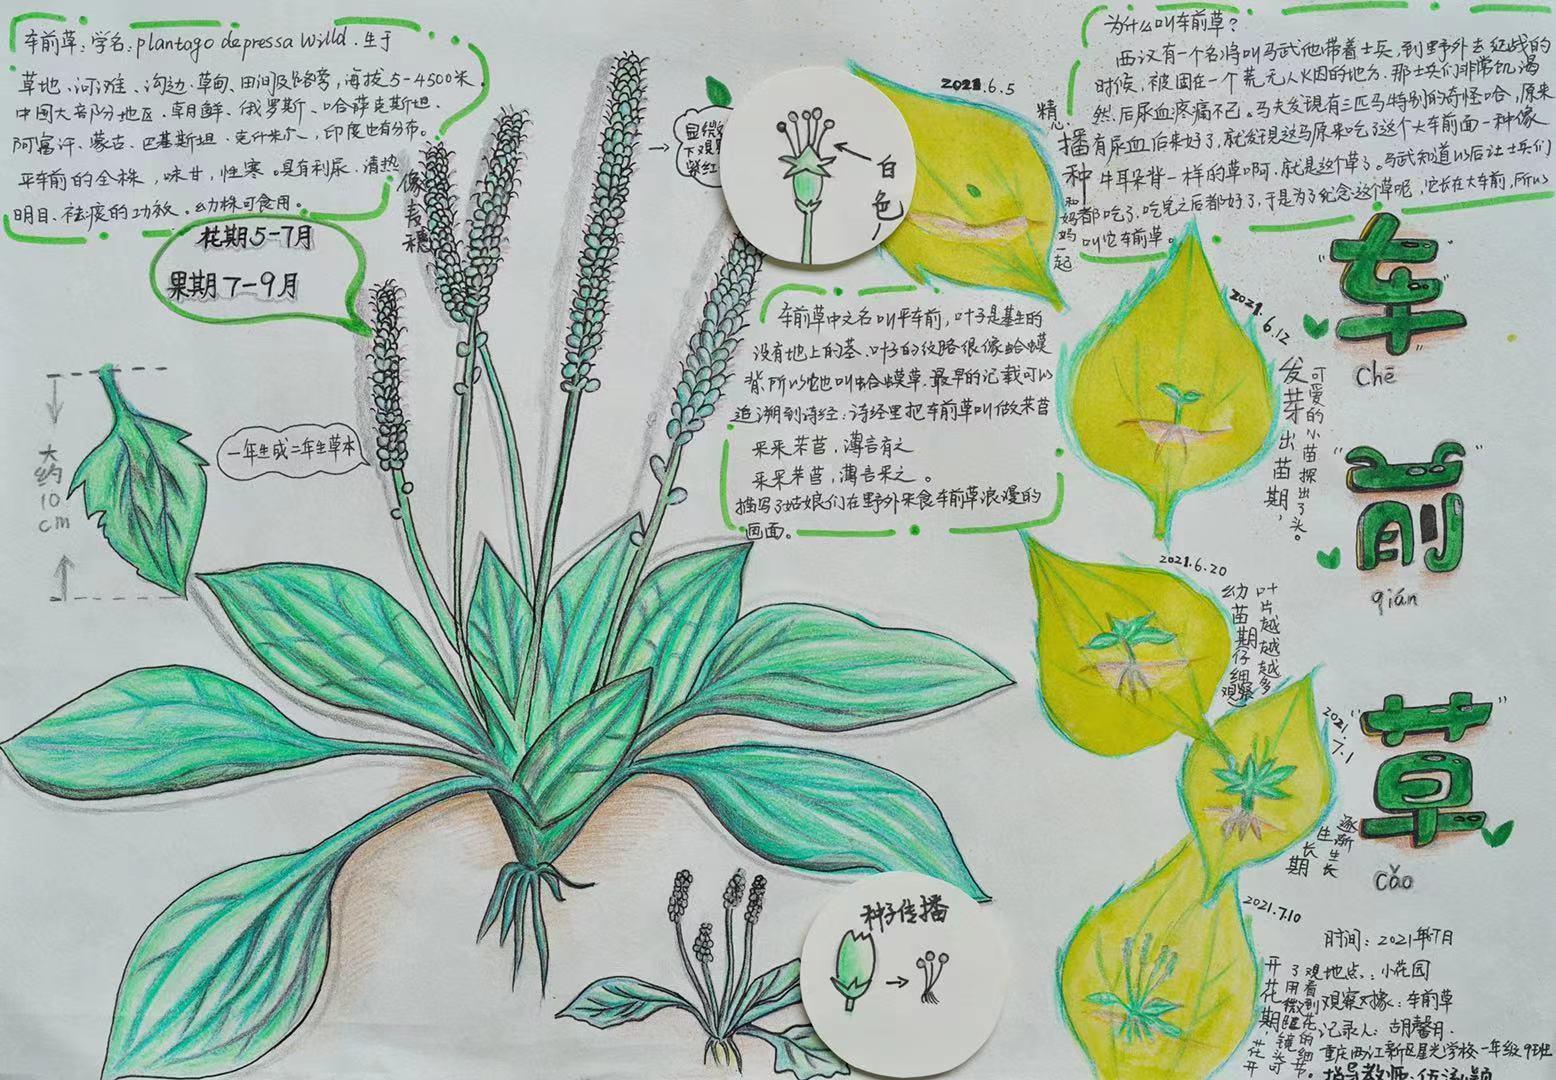 车前草:学名:plantago depressa Willd.生于
草地、河滩、沟边、草甸、田间及路旁,海拔5-4500米
中国大部分地区、朝鲜、俄罗斯、哈萨克斯坦、
阿富汗、蒙古、巴基斯坦、克什米尔、印度也有分布。
平车前的全株,味甘,性寒。具有利尿、清热
明目、祛痰的功效。幼株可食用。
花期5-7月
果期7-9月
像麦穗
一年生或二年生草本
大约10cm
显微
下观
紫红
白色
2021.6.5
精心播种
和妈妈一起
为什么叫车前草?
西汉有一个名将叫马武他带着士兵,到野外去征战的
时候,被困在一个荒无人烟的地方.那士兵们非常饥渴
然后尿血疼痛不已。马夫发现有三匹马特别的奇怪哈,原来
有尿血后来好了,就发现这马原来吃了这个大车前面一种像
牛耳朵背一样的草啊,就是这个草了。马武知道以后让士兵们
都吃了,吃完之后都好了,于是为了纪念这个草呢,它长在大车前,所以
叫它车前草。
车前草中文名叫平车前,叶子是基生的
没有地上的茎、叶子的纹路很像蛤蟆
背,所以它也叫蛤蟆草.最早的记载可以
追溯到诗经:诗经里把车前草叫做芣苢
采采芣苢,薄言有之
采采芣苢,薄言采之。
描写了姑娘们在野外采食车前草浪漫的
画面。
2021.6.12
发芽出苗期,
可爱的小苗探出了头。
车
chē
前
qián
草
cǎo
2021.6.20
幼苗期仔细观察
叶片越越越多
2021.7.1
逐渐生长
生长期
2021.7.10
种子传播
时间:2021年7月
地点:小花园
观察对象:车前草
记录人:胡馨月.
重庆两江新区星光学校一年级9班
指导教师: